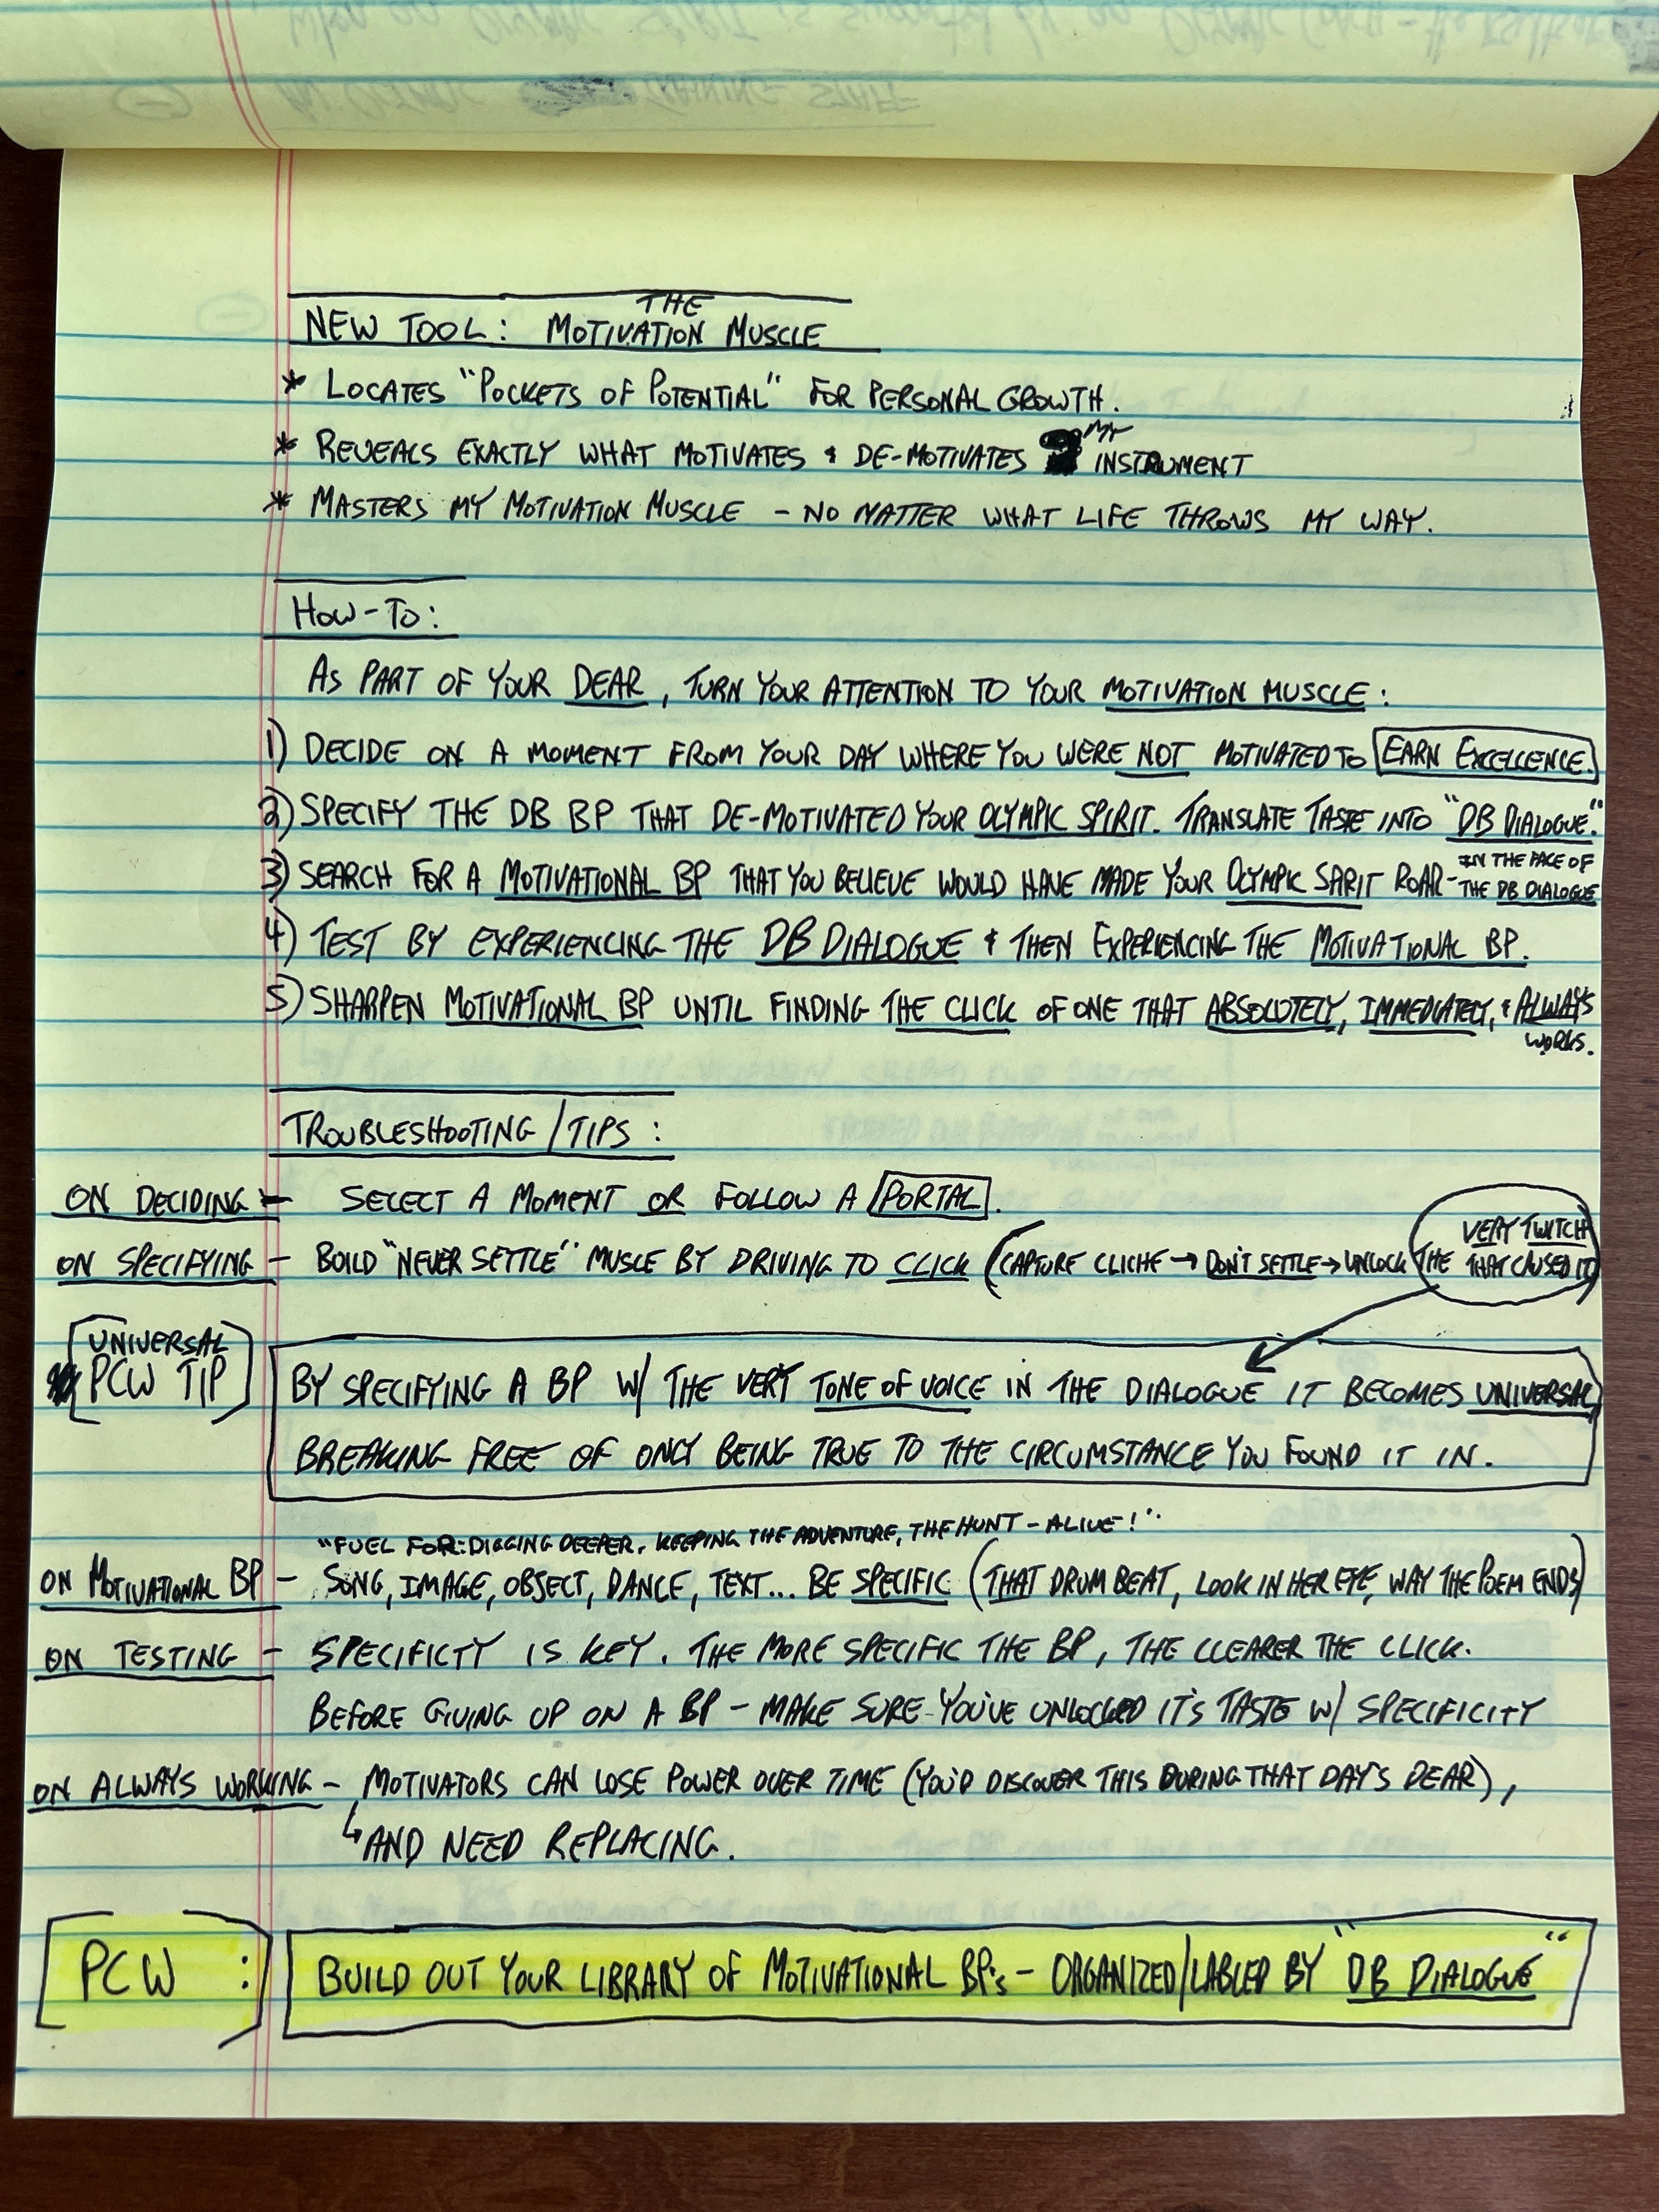 NEW TOOL: THE MOTIVATION MUSCLE
* LOCATES "POCKETS OF POTENTIAL" FOR PERSONAL GROWTH.
* REVEALS EXACTLY WHAT MOTIVATES & DE-MOTIVATES MY INSTRUMENT
* MASTERS MY MOTIVATION MUSCLE - NO MATTER WHAT LIFE THROWS MY WAY.
HOW-TO:
AS PART OF YOUR DEAR, TURN YOUR ATTENTION TO YOUR MOTIVATION MUSCLE:
1) DECIDE ON A MOMENT FROM YOUR DAY WHERE YOU WERE NOT MOTIVATED TO EARN EXCELLENCE.
2) SPECIFY THE DB BP THAT DE-MOTIVATED YOUR OLYMPIC SPIRIT. TRANSLATE TASTE INTO "DB DIALOGUE."
3) SEARCH FOR A MOTIVATIONAL BP THAT YOU BELIEVE WOULD HAVE MADE YOUR OLYMPIC SPIRIT ROAR - IN THE FACE OF THE DB DIALOGUE
4) TEST BY EXPERIENCING THE DB DIALOGUE & THEN EXPERIENCING THE MOTIVATIONAL BP.
5) SHARPEN MOTIVATIONAL BP UNTIL FINDING THE CLICK OF ONE THAT ABSOLUTELY, IMMEDIATELY, & ALWAYS WORKS.
TROUBLESHOOTING/TIPS:
ON DECIDING - SELECT A MOMENT OR FOLLOW A PORTAL.
ON SPECIFYING - BUILD "NEVER SETTLE" MUSCLE BY DRIVING TO CLICK (CAPTURE CLICHE → DON'T SETTLE → UNLOCK THE VERY TWITCH THAT CAUSED IT)
[UNIVERSAL PCW TIP] BY SPECIFYING A BP W/ THE VERY TONE OF VOICE IN THE DIALOGUE IT BECOMES UNIVERSAL,
BREAKING FREE OF ONLY BEING TRUE TO THE CIRCUMSTANCE YOU FOUND IT IN.
"FUEL FOR: DIGGING DEEPER, KEEPING THE ADVENTURE, THE HUNT - ALIVE!"
ON MOTIVATIONAL BP - SONG, IMAGE, OBJECT, DANCE, TEXT... BE SPECIFIC (THAT DRUM BEAT, LOOK IN HER EYE, WAY THE POEM ENDS)
ON TESTING - SPECIFICTY IS KEY. THE MORE SPECIFIC THE BP, THE CLEARER THE CLICK.
BEFORE GIVING UP ON A BP - MAKE SURE YOU'VE UNLOCKED IT'S TASTE W/ SPECIFICITY
ON ALWAYS WORKING - MOTIVATORS CAN LOSE POWER OVER TIME (YOU'D DISCOVER THIS DURING THAT DAY'S DEAR),
↳ AND NEED REPLACING.
[PCW:] BUILD OUT YOUR LIBRARY OF MOTIVATIONAL BP's - ORGANIZED/LABLED BY "DB DIALOGUE"